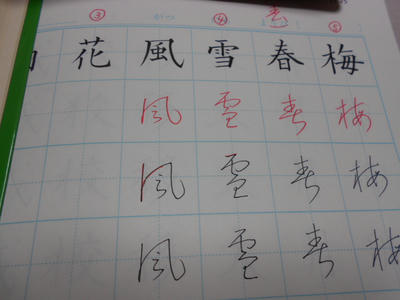 ③ ④ ⑤
花 風 雪 春 梅
風 雪 春 梅
風 雪 春 梅
風 雪 春 梅